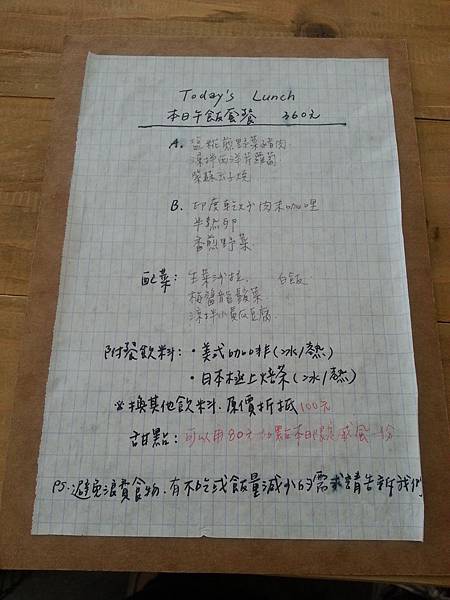 Today's Lunch
本日午飯套餐 360元
A. 鹽糀煎野菜豬肉
涼拌西洋芹蘿蔔
紫蘇玉子燒
B. 印度乾炒肉末咖哩
半熟卵
香煎野菜
配菜: 生菜沙拉、 白飯
梅醬龍鬚菜
涼拌小黃瓜豆腐
附餐飲料: ・美式咖啡(冰/熱)
・日本極上焙茶(冰/熱)
※換其他飲料.原價折抵100元
甜點: 可以用80元加點本日限定戚風一份
PS.避免浪費食物.有不吃或飯量減少的需求請告訴我們